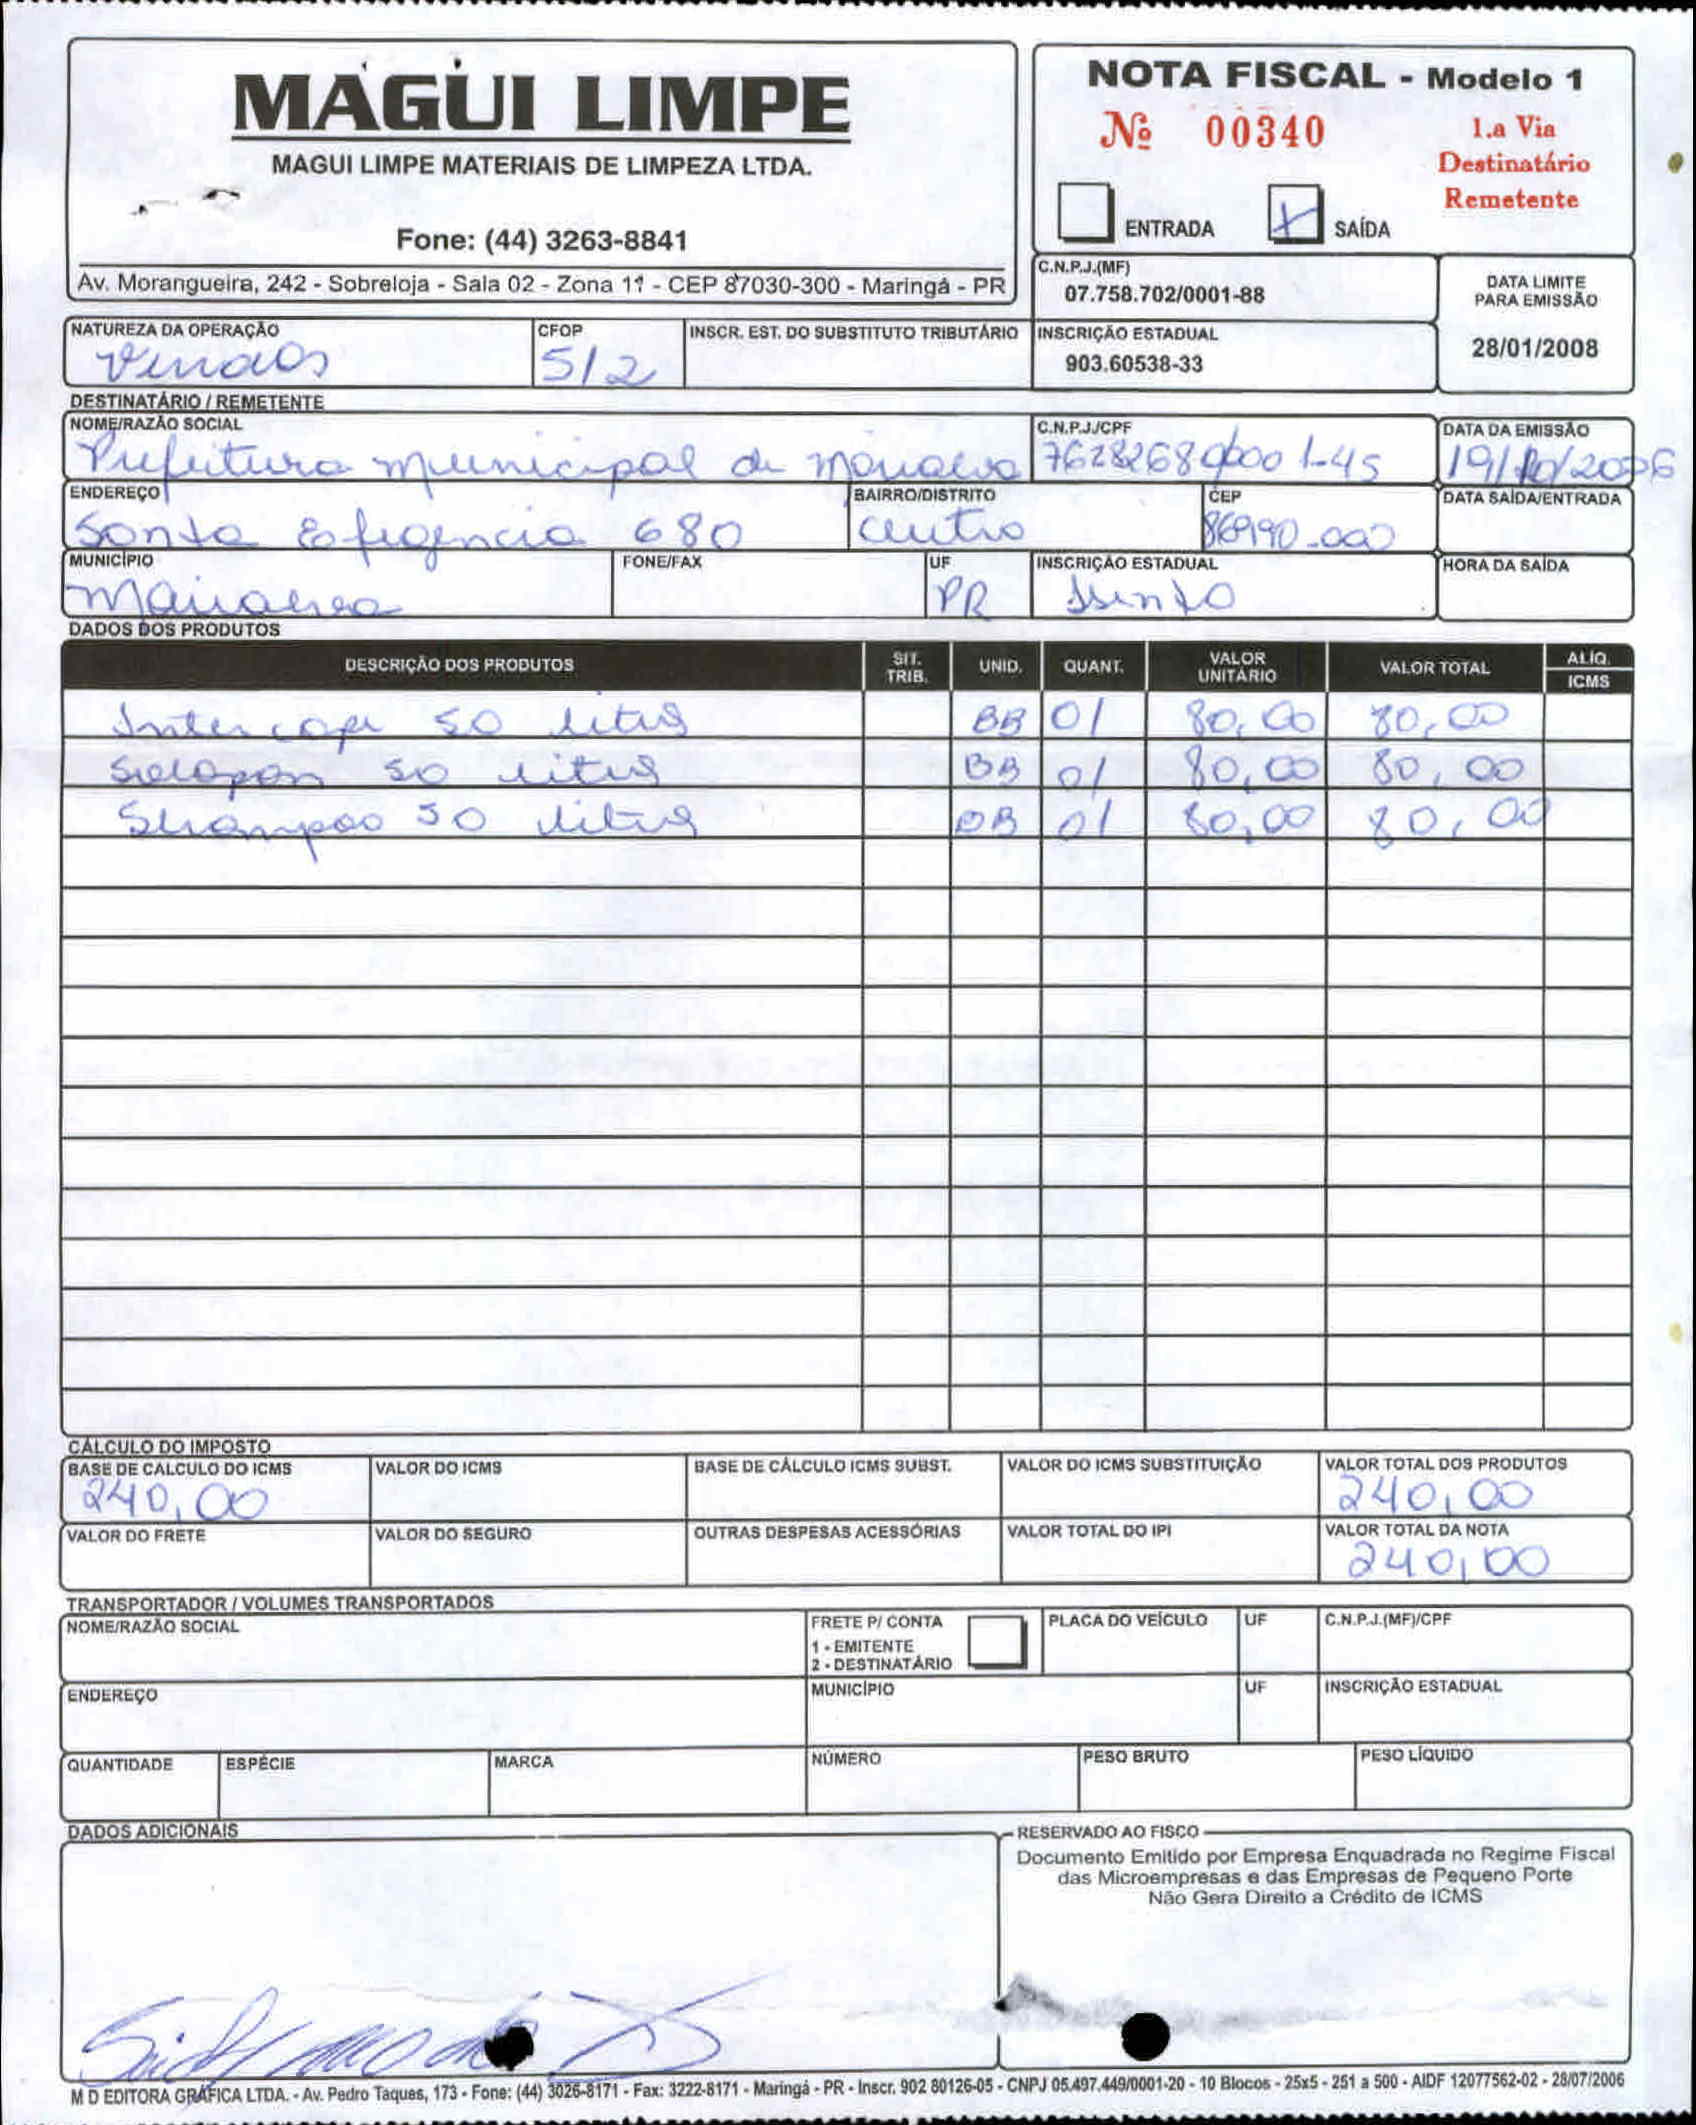 MAGUI LIMPE
MAGUI LIMPE MATERIAIS DE LIMPEZA LTDA.
Fone: (44) 3263-8841
Av. Morangueira, 242 - Sobreloja - Sala 02 - Zona 11 - CEP 87030-300 - Maringá - PR
NOTA FISCAL - Modelo 1
Nº 00340
1.a Via
Destinatário
Remetente
ENTRADA X SAÍDA
C.N.P.J.(MF)
07.758.702/0001-88
DATA LIMITE
PARA EMISSÃO
28/01/2008
NATUREZA DA OPERAÇÃO
Vendas
CFOP
512
INSCR. EST. DO SUBSTITUTO TRIBUTÁRIO
INSCRIÇÃO ESTADUAL
903.60538-33
DESTINATÁRIO / REMETENTE
NOME/RAZÃO SOCIAL
Prefeitura Municipal de Marialva
C.N.P.J./CPF
76282680/0001-45
DATA DA EMISSÃO
19/10/2006
ENDEREÇO
Santa Efigencia 680
BAIRRO/DISTRITO
Centro
CEP
86990-000
DATA SAÍDA/ENTRADA
MUNICÍPIO
Marialva
FONE/FAX
UF
PR
INSCRIÇÃO ESTADUAL
Isento
HORA DA SAÍDA
DADOS DOS PRODUTOS
DESCRIÇÃO DOS PRODUTOS SIT. TRIB. UNID. QUANT. VALOR UNITÁRIO VALOR TOTAL ALÍQ. ICMS
Intercap 50 litros BB 01 80,00 80,00
50 litros BB 01 80,00 80,00
Shampoo 50 litros BB 01 80,00 80,00
CÁLCULO DO IMPOSTO
BASE DE CÁLCULO DO ICMS
240,00
VALOR DO ICMS
BASE DE CÁLCULO ICMS SUBST.
VALOR DO ICMS SUBSTITUIÇÃO
VALOR TOTAL DOS PRODUTOS
240,00
VALOR DO FRETE
VALOR DO SEGURO
OUTRAS DESPESAS ACESSÓRIAS
VALOR TOTAL DO IPI
VALOR TOTAL DA NOTA
240,00
TRANSPORTADOR / VOLUMES TRANSPORTADOS
NOME/RAZÃO SOCIAL
FRETE P/ CONTA
1 - EMITENTE
2 - DESTINATÁRIO
PLACA DO VEÍCULO
UF
C.N.P.J.(MF)/CPF
ENDEREÇO
MUNICÍPIO
UF
INSCRIÇÃO ESTADUAL
QUANTIDADE
ESPÉCIE
MARCA
NÚMERO
PESO BRUTO
PESO LÍQUIDO
DADOS ADICIONAIS
RESERVADO AO FISCO
Documento Emitido por Empresa Enquadrada no Regime Fiscal
das Microempresas e das Empresas de Pequeno Porte
Não Gera Direito a Crédito de ICMS
M D EDITORA GRÁFICA LTDA. - Av. Pedro Taques, 173 - Fone: (44) 3026-8171 - Fax: 3222-8171 - Maringá - PR - Inscr. 902 80126-05 - CNPJ 05.497.449/0001-20 - 10 Blocos - 25x5 - 251 a 500 - AIDF 12077562-02 - 28/07/2006